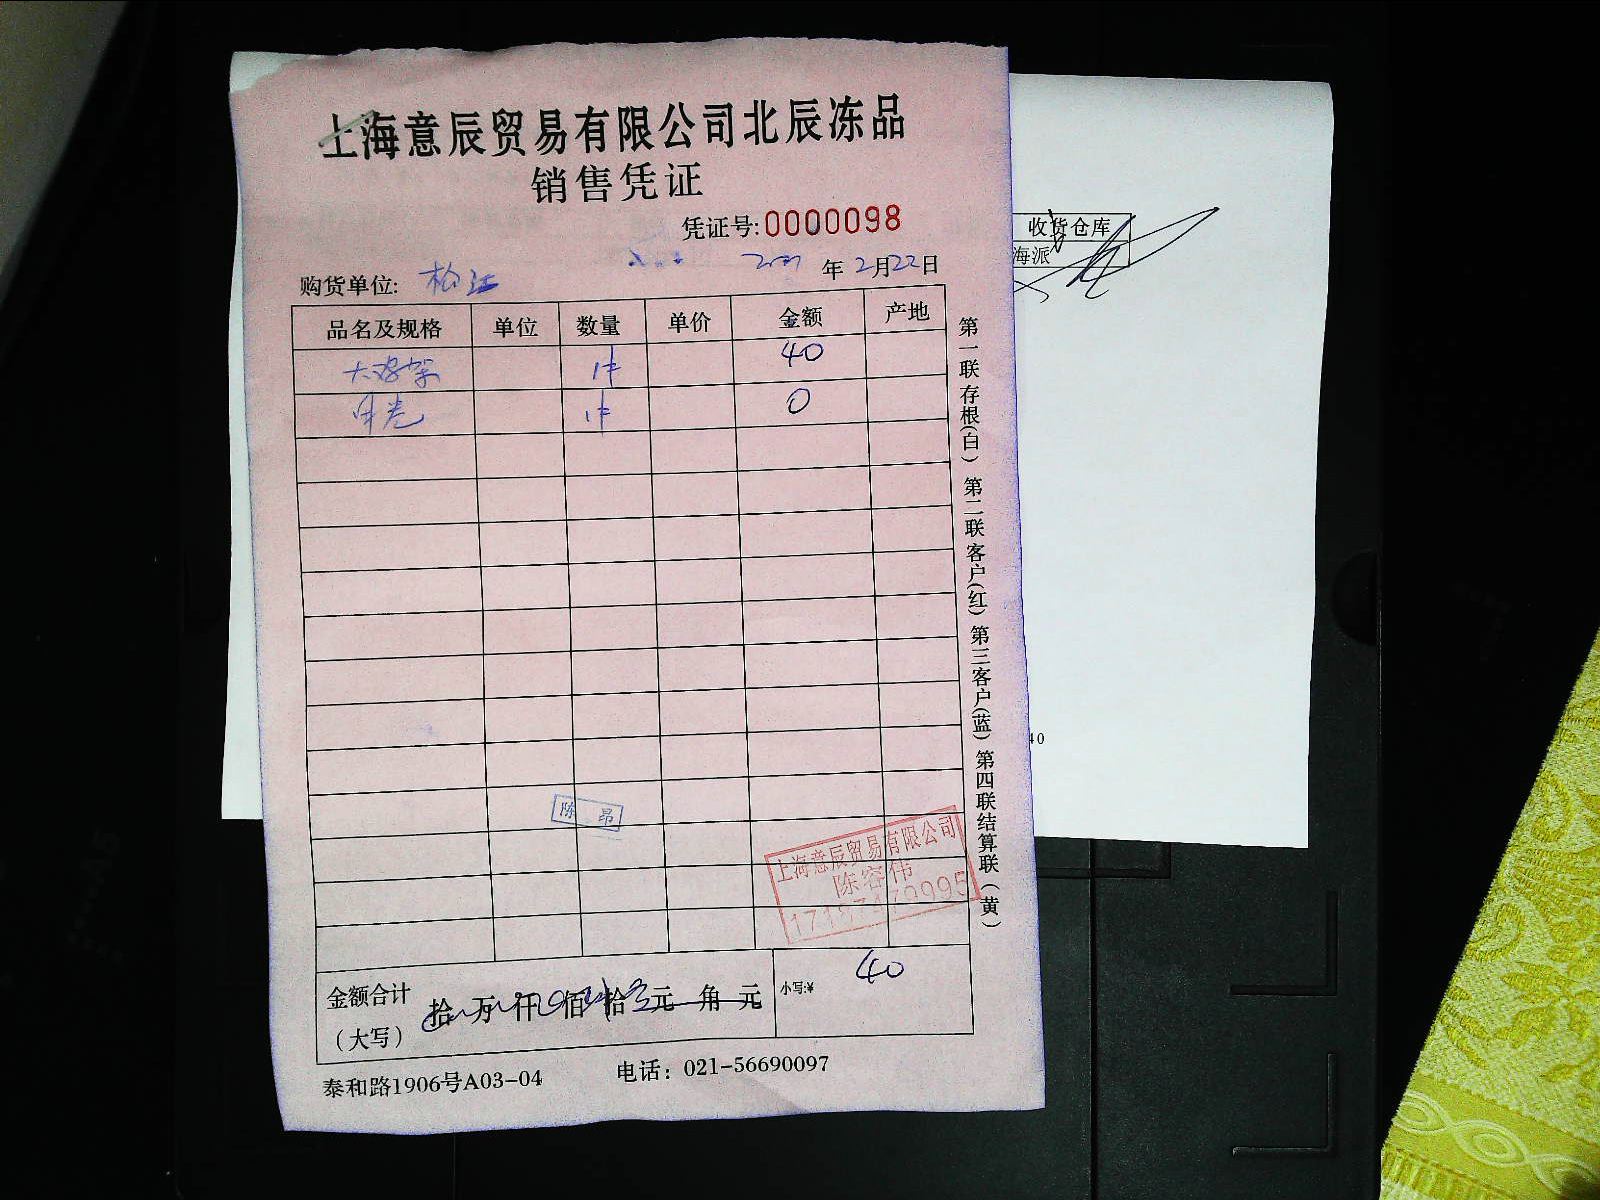 上海意辰贸易有限公司北辰冻品
销售凭证
凭证号:0000098
购货单位: 松江 2021年2月22日
品名及规格 单位 数量 单价 金额 产地
大鸡架 1件 40
1件 0
第一联存根(白) 第二联客户(红) 第三客户(蓝) 第四联结算联(黄)
陈 昂
上海意辰贸易有限公司
陈容伟
金额合计(大写) 拾 万 仟 佰 拾 元 角 元 小写:¥ 40
泰和路1906号A03-04 电话: 021-56690097
收货仓库
海派
40